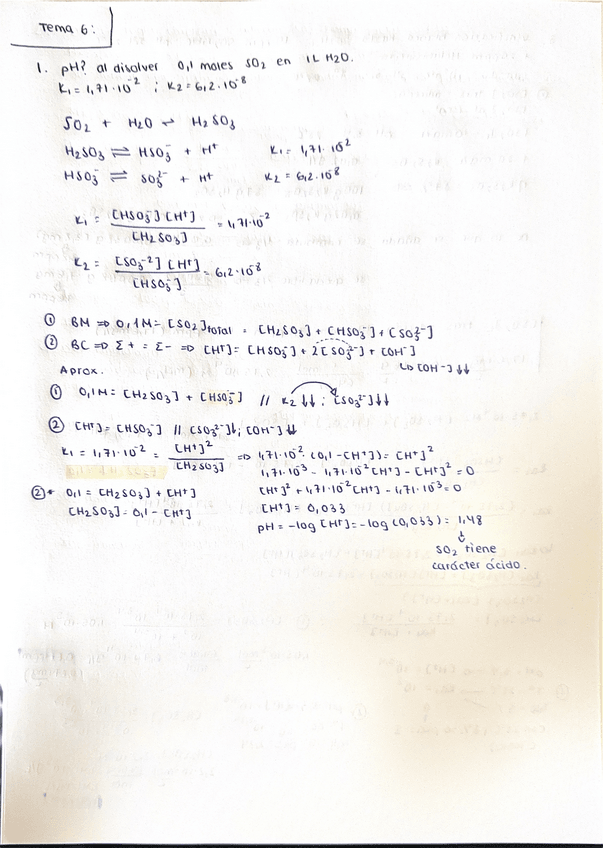 Tema 6:
1. pH? al disolver 0,1 moles SO₂ en 1L H₂O.
K₁ = 1,71·10⁻² ; K₂ = 6,2·10⁻⁸
SO₂ + H₂O ⇌ H₂SO₃
H₂SO₃ ⇌ HSO₃⁻ + H⁺ K₁ = 1,71·10⁻²
HSO₃⁻ ⇌ SO₃²⁻ + H⁺ K₂ = 6,2·10⁻⁸
K₁ = [HSO₃⁻][H⁺] / [H₂SO₃] = 1,71·10⁻²
K₂ = [SO₃⁻²][H⁺] / [HSO₃⁻] = 6,2·10⁻⁸
① BM ⇒ 0,1M = [SO₂]total = [H₂SO₃] + [HSO₃⁻] + [SO₃²⁻]
② BC ⇒ Σ+ = Σ- ⇒ [H⁺] = [HSO₃⁻] + 2[SO₃²⁻] + [OH⁻]
Aprox. ↳ [OH⁻]↓↓
① 0,1M = [H₂SO₃] + [HSO₃⁻] // K₂↓↓ ; [SO₃²⁻]↓↓
② [H⁺] = [HSO₃⁻] // [SO₃²⁻]↓; [OH⁻]↓↓
K₁ = 1,71·10⁻² = [H⁺]² / [H₂SO₃] ⇒ 1,71·10⁻²·(0,1-[H⁺]) = [H⁺]²
1,71·10⁻³ - 1,71·10⁻²[H⁺] - [H⁺]² = 0
②* 0,1 = [H₂SO₃] + [H⁺] [H⁺]² + 1,71·10⁻²[H⁺] - 1,71·10⁻³ = 0
[H₂SO₃] = 0,1 - [H⁺] [H⁺] = 0,033
pH = -log [H⁺] = -log (0,033) = 1,48
↓
SO₂ tiene
carácter ácido.